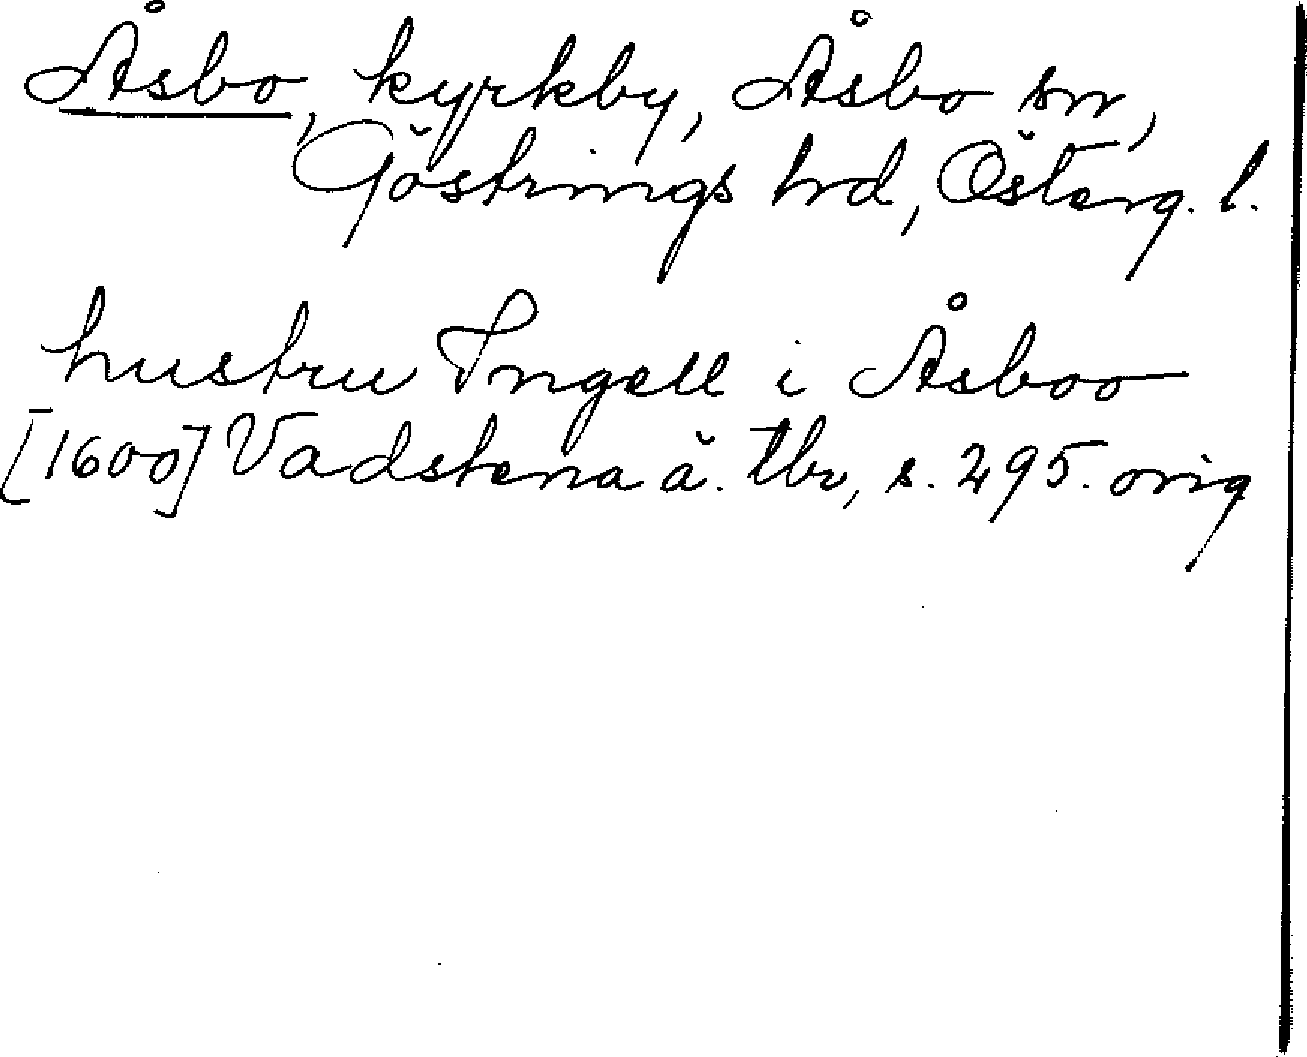 Åsbo, kyrkby, Åsbo sn,
Göstrings hd, Österg. l.
hustru Ingell i Åsboo
[1600] Vadstena ä. tbr, s. 295. orig